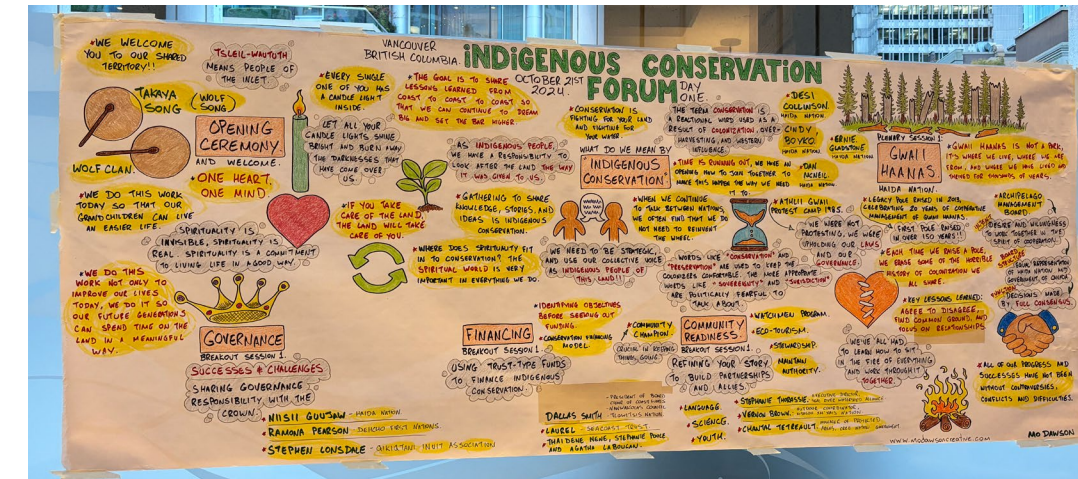 VANCOUVER
BRITISH COLUMBIA.
INDIGENOUS CONSERVATION
FORUM
OCTOBER 21ST
2024.
DAY
ONE
*WE WELCOME
YOU TO OUR SHARED
TERRITORY!!
TSLEIL-WAUTUTH
MEANS PEOPLE OF
THE INLET.
TAKAYA (WOLF
SONG SONG)
WOLF CLAN.
OPENING
CEREMONY.
AND WELCOME.
*ONE HEART,
ONE MIND.
*EVERY SINGLE
ONE OF YOU HAS
A CANDLE LIGHT
INSIDE.
LET ALL YOUR
CANDLE LIGHTS SHINE
BRIGHT AND BURN AWAY
THE DARKNESSES THAT
HAVE COME OVER
US.
*WE DO THIS WORK
TODAY SO THAT OUR
GRANDCHILDREN CAN LIVE
AN EASIER LIFE.
SPIRITUALITY IS
INVISIBLE, SPIRITUALITY IS
REAL. SPIRITUALITY IS A COMMITMENT
TO LIVING LIFE IN A GOOD WAY.
*WE DO THIS
WORK NOT ONLY TO
IMPROVE OUR LIVES
TODAY, WE DO IT SO
OUR FUTURE GENERATIONS
CAN SPEND TIME ON THE
LAND IN A MEANINGFUL
WAY.
*THE GOAL IS TO SHARE
LESSONS LEARNED FROM
COAST TO COAST TO COAST SO
THAT WE CAN CONTINUE TO DREAM
BIG AND SET THE BAR HIGHER.
AS INDIGENOUS PEOPLE,
WE HAVE A RESPONSIBILITY TO
LOOK AFTER THE LAND THE WAY
IT WAS GIVEN TO US.
*IF YOU TAKE
CARE OF THE LAND,
THE LAND WILL TAKE
CARE OF YOU.
*GATHERING TO SHARE
KNOWLEDGE, STORIES, AND
IDEAS IS INDIGENOUS
CONSERVATION.
*WHERE DOES SPIRITUALITY FIT
IN TO CONSERVATION? THE
SPIRITUAL WORLD IS VERY
IMPORTANT IN EVERYTHING WE DO.
*CONSERVATION IS
FIGHTING FOR YOUR LAND
AND FIGHTING FOR
YOUR WATER.
WHAT DO WE MEAN BY
INDIGENOUS
CONSERVATION"
THE TERM CONSERVATION IS
REACTIONAL WORD USED AS A
RESULT OF COLONIZATION, OVER-
HARVESTING, AND WESTERN
INFLUENCE.
*TIME IS RUNNING OUT, WE HAVE AN
OPENING NOW TO JOIN TOGETHER TO
MAKE THIS HAPPEN THE WAY WE NEED
IT TO.
*WHEN WE CONTINUE
TO TALK BETWEEN NATIONS,
WE OFTEN FIND THAT WE DO
NOT NEED TO REINVENT
THE WHEEL.
WE NEED TO BE STRATEGIC,
AND USE OUR COLLECTIVE VOICE
AS INDIGENOUS PEOPLE OF
THIS LAND!!
WORDS LIKE "CONSERVATION" AND
"PRESERVATION" ARE USED TO KEEP THE
COLONIZERS COMFORTABLE. THE MORE APPROPRIATE
WORDS LIKE "SOVEREIGNTY" AND "JURISDICTION"
ARE POLITICALLY FEARFUL TO
TALK ABOUT.
*DESI
COLLINSON.
HAIDA NATION.
CINDY
BOYKO.
HAIDA NATION.
*ERNIE
GLADSTONE
HAIDA NATION.
*DAN
MCNEIL.
HAIDA NATION
PLENARY SESSION 1.
GWAII
HAANAS.
HAIDA NATION.
*GWAII HAANAS IS NOT A PARK,
IT'S WHERE WE LIVE, WHERE WE ARE
FROM, AND WHERE WE HAVE LIVED AND
THRIVED FOR THOUSANDS OF YEARS.
*ATHLII GWAII
PROTEST CAMP 1985.
WE WERE NOT
PROTESTING, WE WERE
UPHOLDING OUR LAWS
AND OUR
GOVERNANCE.
*LEGACY POLE RAISED IN 2013,
CELEBRATING 20 YEARS OF COOPERATIVE
MANAGEMENT OF GWAII HAANAS.
FIRST POLE RAISED
IN OVER 130 YEARS!!
*EACH TIME WE RAISE A POLE
WE ERASE SOME OF THE HORRIBLE
HISTORY OF COLONIZATION WE
ALL SHARE.
*KEY LESSONS LEARNED:
AGREE TO DISAGREE,
FIND COMMON GROUND, AND
FOCUS ON RELATIONSHIPS
*ARCHIPELAGO
MANAGEMENT
BOARD.
DESIRE AND WILLINGNESS
TO WORK TOGETHER IN THE
SPIRIT OF COOPERATION.
EQUAL REPRESENTATION
OF HAIDA NATION AND
GOVERNMENT OF CANADA
DECISIONS MADE
BY FULL CONSENSUS.
WE'VE ALL HAD
TO LEARN HOW TO SIT
IN THE FIRE OF EVERYTHING
AND WORK THROUGH IT
TOGETHER.
*ALL OF OUR PROGRESS AND
SUCCESSES HAVE NOT BEEN
WITHOUT CONTROVERSIES,
CONFLICTS AND DIFFICULTIES.
GOVERNANCE
BREAKOUT SESSION 1.
SUCCESSES & CHALLENGES
SHARING GOVERNANCE
RESPONSIBILITY WITH THE
CROWN.
*NIISII GUUJAW - HAIDA NATION
*RAMONA PEARSON - DEHCHO FIRST NATIONS.
*STEPHEN LONSDALE - QIKIQTANI INUIT ASSOCIATION
FINANCING
BREAKOUT SESSION 1.
USING TRUST-TYPE FUNDS
TO FINANCE INDIGENOUS
CONSERVATION.
*IDENTIFYING OBJECTIVES
BEFORE SEEKING OUT
FUNDING.
*CONSERVATION FINANCING
MODEL.
DALLAS SMITH
- PRESIDENT OF BOARD
- TLOWITSIS NATION
*LAUREL - SEACOAST TRUST
*THAIDENE NENE, STEPHANIE POOLE
AND AGATHA LABOUCAN.
*COMMUNITY
CHAMPION.
CRUCIAL IN KEEPING
THINGS GOING.
COMMUNITY
READINESS.
BREAKOUT SESSION 1.
REFINING YOUR STORY
TO BUILD PARTNERSHIPS
AND ALLIES.
*WATCHMEN PROGRAM.
*ECO-TOURISM.
*STEWARDSHIP.
MAINTAIN
AUTHORITY.
*LANGUAGE.
*SCIENCE.
*YOUTH.
*STEPHANIE THORASSIE.
*VERNON BROWN.
*CHANTAL TETREAULT
WWW.MODAWSONCREATIVE.COM
MO DAWSON